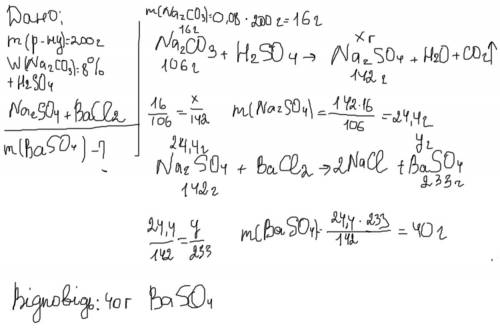 Дано:
m(р-ну)=200г
W(Na₂CO₃)=8%
+H₂SO₄
Na₂SO₄+BaCl₂
m(BaSO₄)-?
m(Na₂CO₃)=0,08·200г=16г
16г xг
Na₂CO₃+H₂SO₄→Na₂SO₄+H₂O+CO₂↑
106г 142г
16/106=x/142 m(Na₂SO₄)=142·16/106=24,4г
24,4г yг
Na₂SO₄+BaCl₂→2NaCl+BaSO₄
142г 233г
24,4/142=y/233 m(BaSO₄)·24,4·233/142=40г
Відповідь: 40г BaSO₄